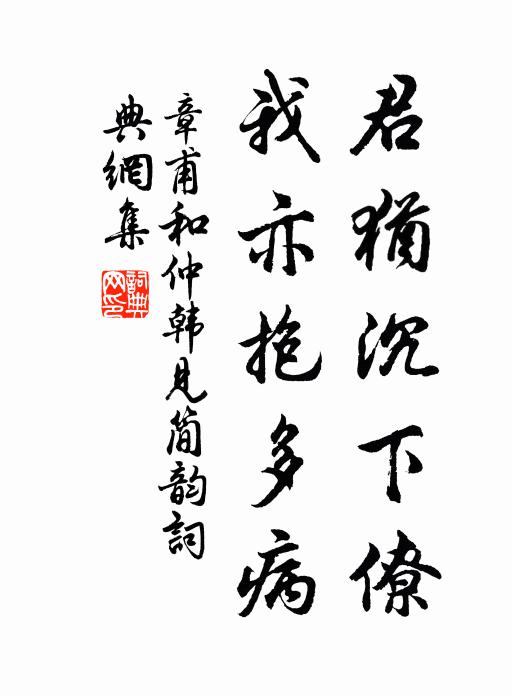 君猶沉下僚
我亦抱多病
章甫和仲韩見簡韵詞
典網集
詞典
网印